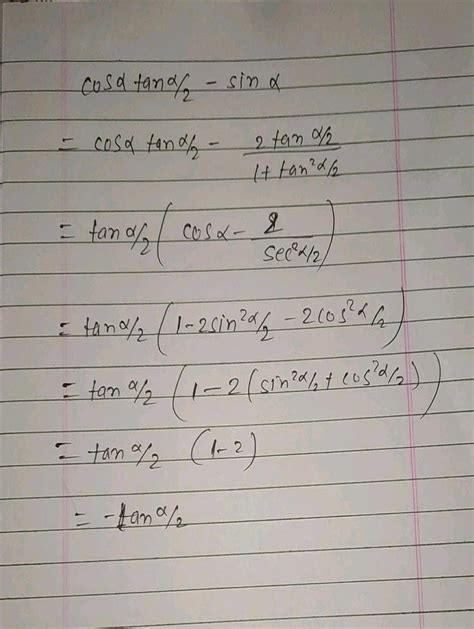 cosα tanα/2 - sin α
= cosα tanα/2 - 2 tan α/2 / 1 + tan²α/2
= tanα/2 ( cosα - 2 / sec²α/2 )
= tanα/2 ( 1-2sin²α/2 - 2cos²α/2 )
= tan α/2 ( 1-2 ( sin²α/2 + cos²α/2 ) )
= tan α/2 (1-2)
= -tan α/2